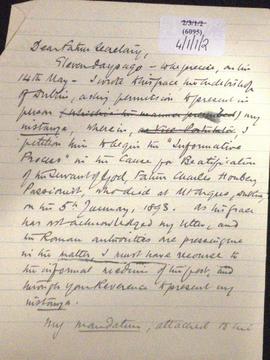 2/3/1/2
(6095)
4/1/1/2
Dear Father Secretary,
Eleven days ago – to be precise, on the
14th May – I wrote His Grace the Archbishop
of Dublin, asking permission to present in
person (which is the manner prescribed) my
instanza, wherein, as Vice Postulator I
petition him to begin the "Informative
Process" in the Cause for Beatification
of the Servant of God, Father Charles Houben,
Passionist, who died at Mt Argus, Dublin
on the 5th January, 1893. As His Grace
has not acknowledged my letter, and
the Roman authorities are pressing me
in the matter, I must have recourse to
the informal medium of the post, and
through your Reverence to present my
instanza.
My mandatum, attached to the